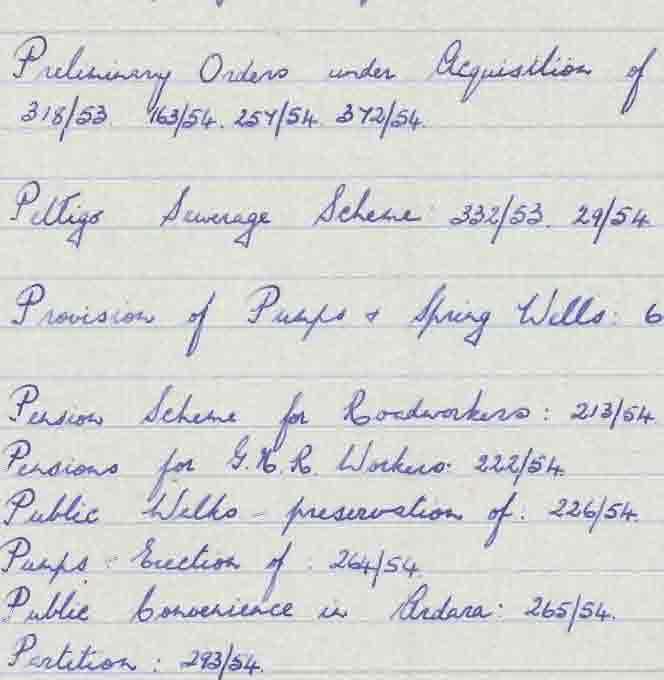 Preliminary Orders under Acquisition of
318/53 163/54. 257/54. 372/54.
Pettigo Sewerage Scheme: 332/53. 29/54
Provision of Pumps + Spring Wells: 6
Pension Scheme for Roadworkers: 213/54.
Pensions for G.N.R. Workers: 222/54.
Public Wells - preservation of: 226/54.
Pumps: Erection of: 264/54.
Public Convenience in Ardara: 265/54.
Partition: 293/54.